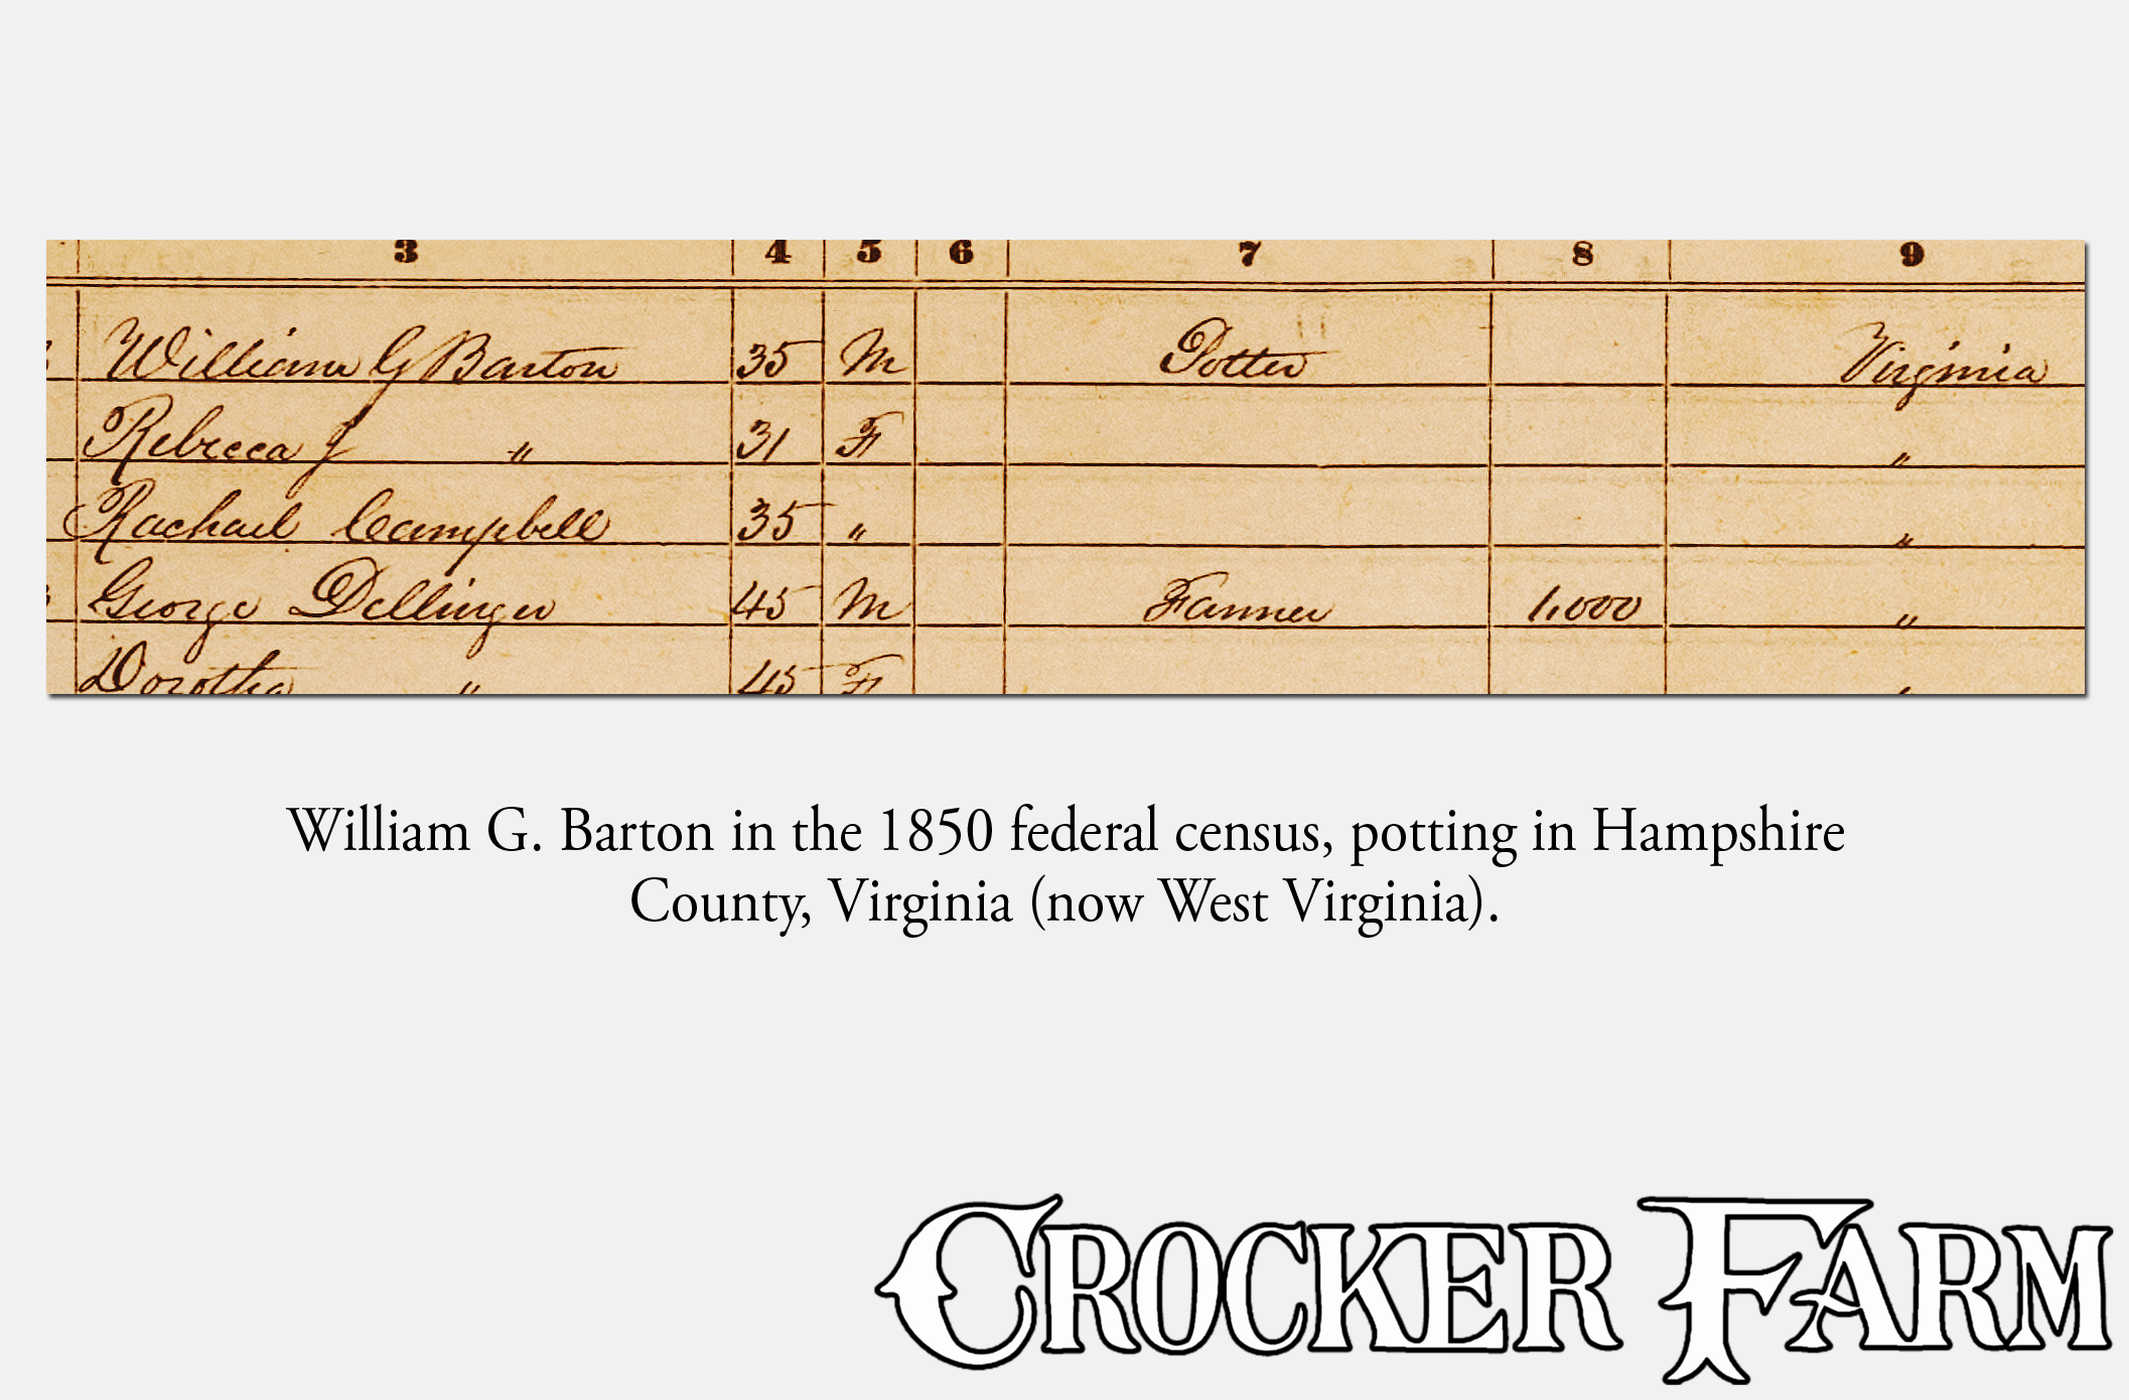 3 4 5 6 7 8 9
William G Barton 35 M Potter Virginia
Rebecca J " 31 F "
Rachael Campbell 35 " "
George Dellinger 45 M Farmer 1,000 "
Dorotha " 45 F "
William G. Barton in the 1850 federal census, potting in Hampshire
County, Virginia (now West Virginia).
CROCKER FARM